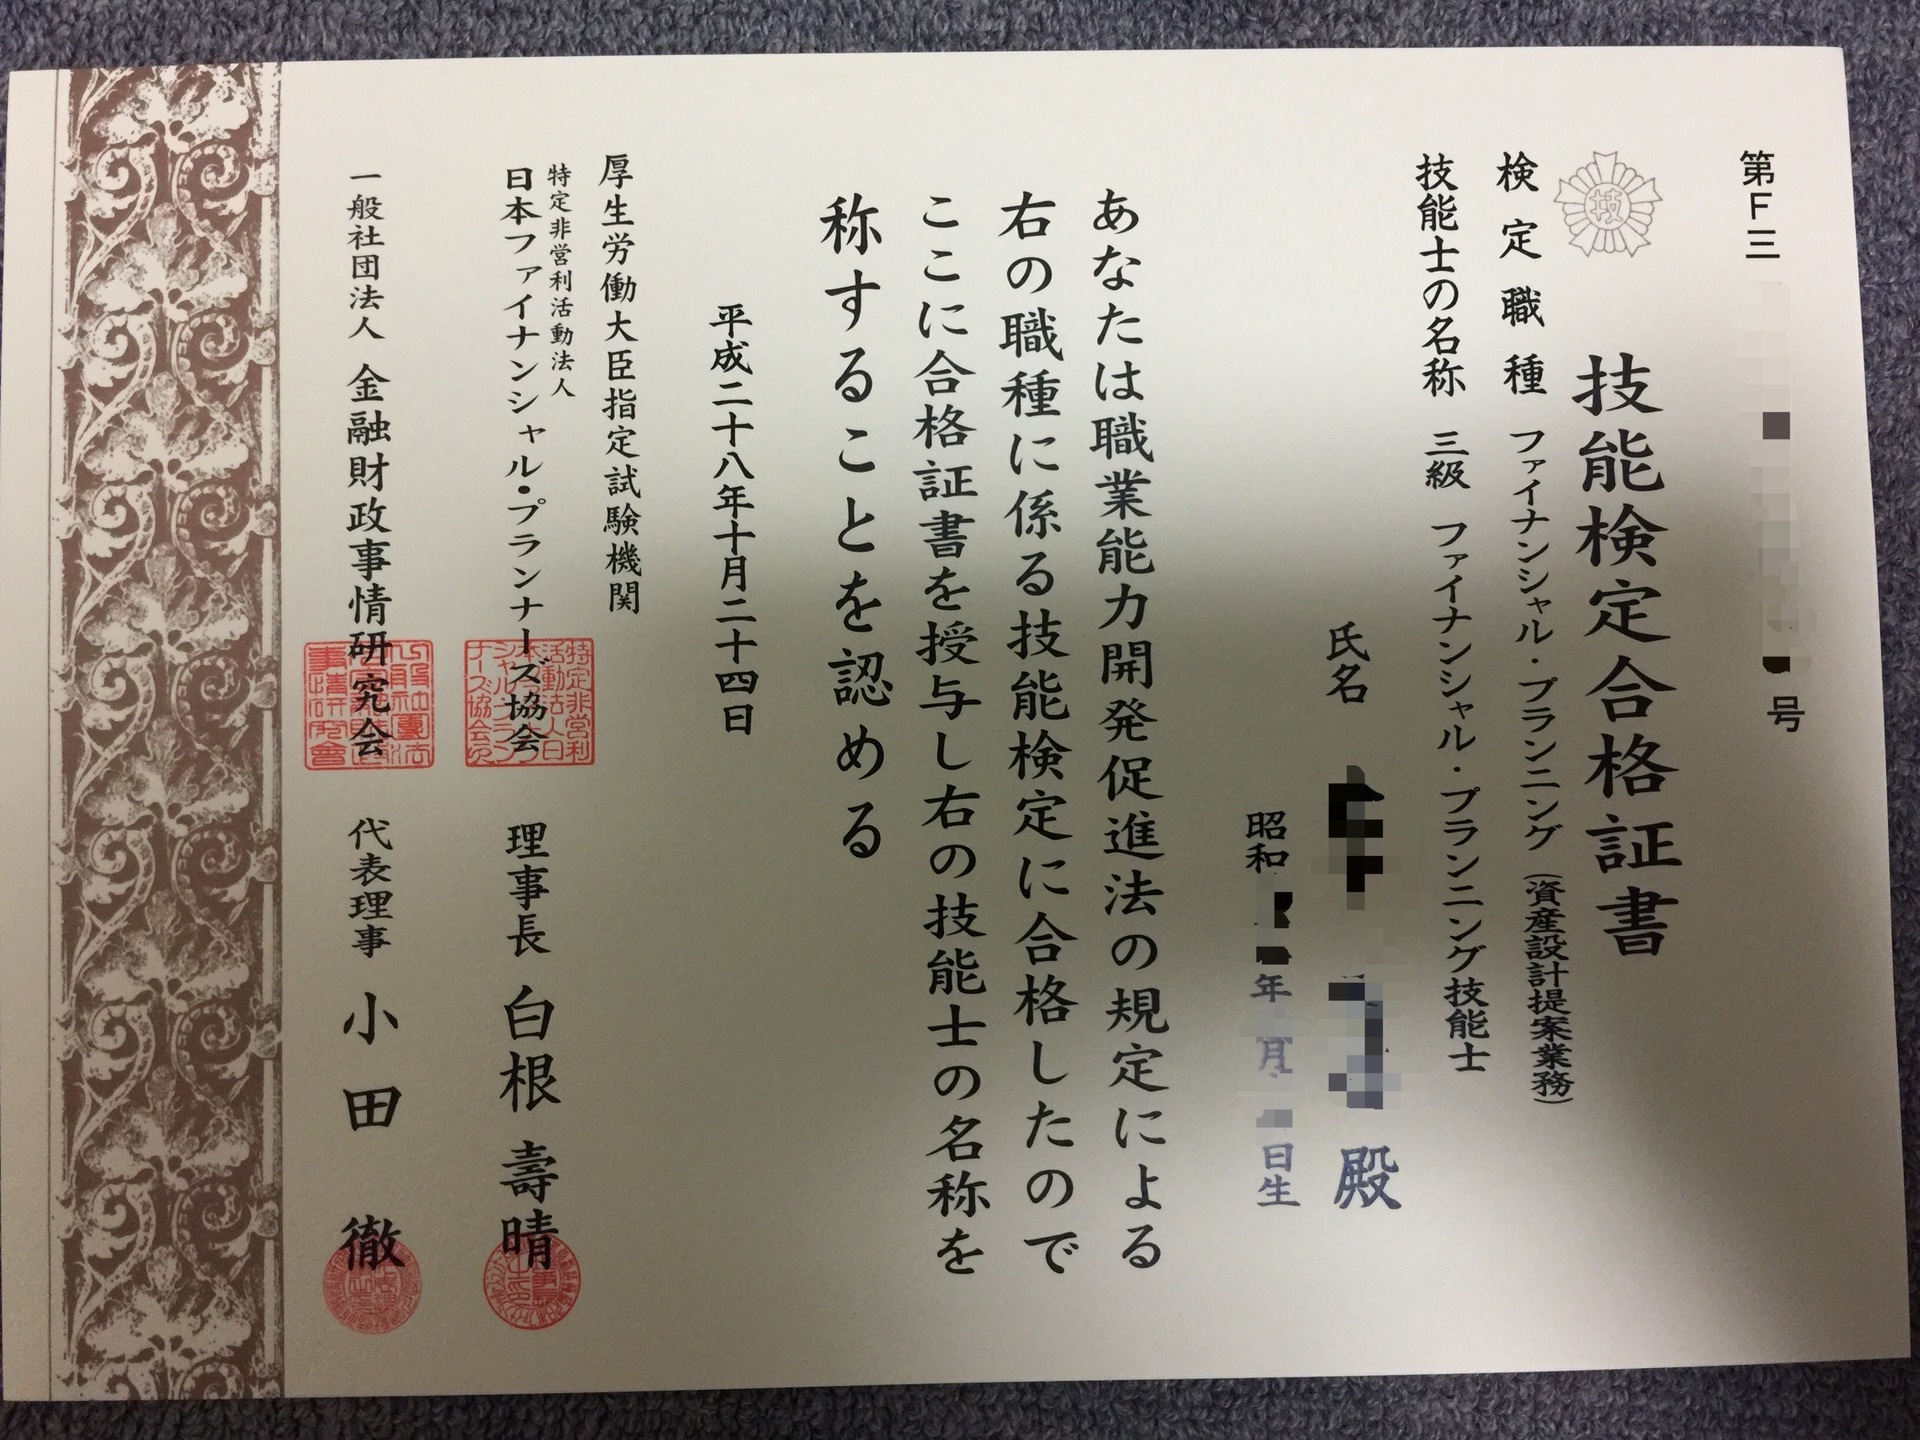 第F三
号
技能検定合格証書
技
検定職種 ファイナンシャル・プランニング(資産設計提案業務)
技能士の名称 三級 ファイナンシャル・プランニング技能士
氏名
殿
昭和
年
月
日生
あなたは職業能力開発促進法の規定による
右の職種に係る技能検定に合格したので
ここに合格証書を授与し右の技能士の名称を
称することを認める
平成二十八年十月二十四日
厚生労働大臣指定試験機関
特定非営利活動法人
日本ファイナンシャル・プランナーズ協会 理事長 白根 壽晴
一般社団法人 金融財政事情研究会 代表理事 小田 徹